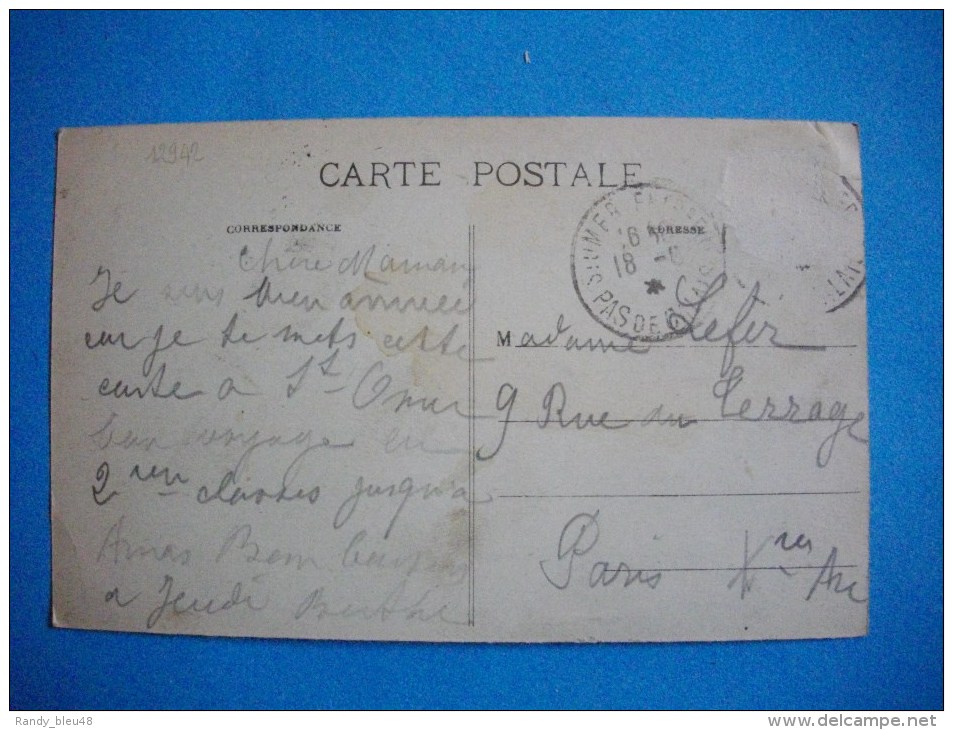 12942
CARTE POSTALE
CORRESPONDANCE
ADRESSE
ST OMER
PAS DE CALAIS
18
Chère Maman
Je suis bien arrivée
car je te mets cette
carte a St-Omer
bon voyage en
2 classes jusqu'a
Arras Bon baisers
a Jeudi Berthe
Madame Lefer
9 Rue du Terrage
Paris X Arr
Randy_bleu48
delcampe.net